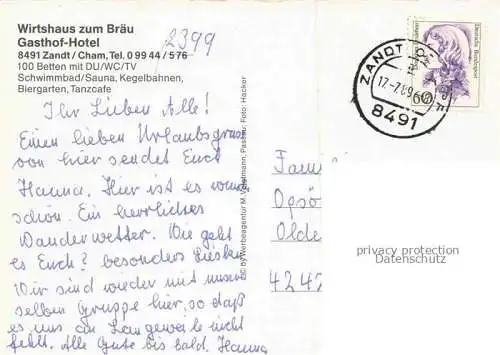 Wirtshaus zum Bräu
Gasthof-Hotel
8491 Zandt / Cham, Tel. 0 99 44 / 576
100 Betten mit DU/WC/TV
Schwimmbad/Sauna, Kegelbahnen,
Biergarten, Tanzcafe
2399
Ihr Lieben Alle!
Einen lieben Urlaubsgruss
von hier sendet Euch
Hanna. Hier ist es
schön. Ein herrliches
Wanderwetter. Wie geht
es Euch? besonders
Wir sind wieder mit unserer
selben Gruppe hier, so daß
es uns an Langeweile nicht
fehlt. Alle Gute bis bald. Hanna
by Werbeagentur M. Passau, Foto: Hacker
ZANDT
17.-7.89
8491
60
Deutsche Bundespost
Fam
Ogsö
Olde
4242
privacy protection
Datenschutz